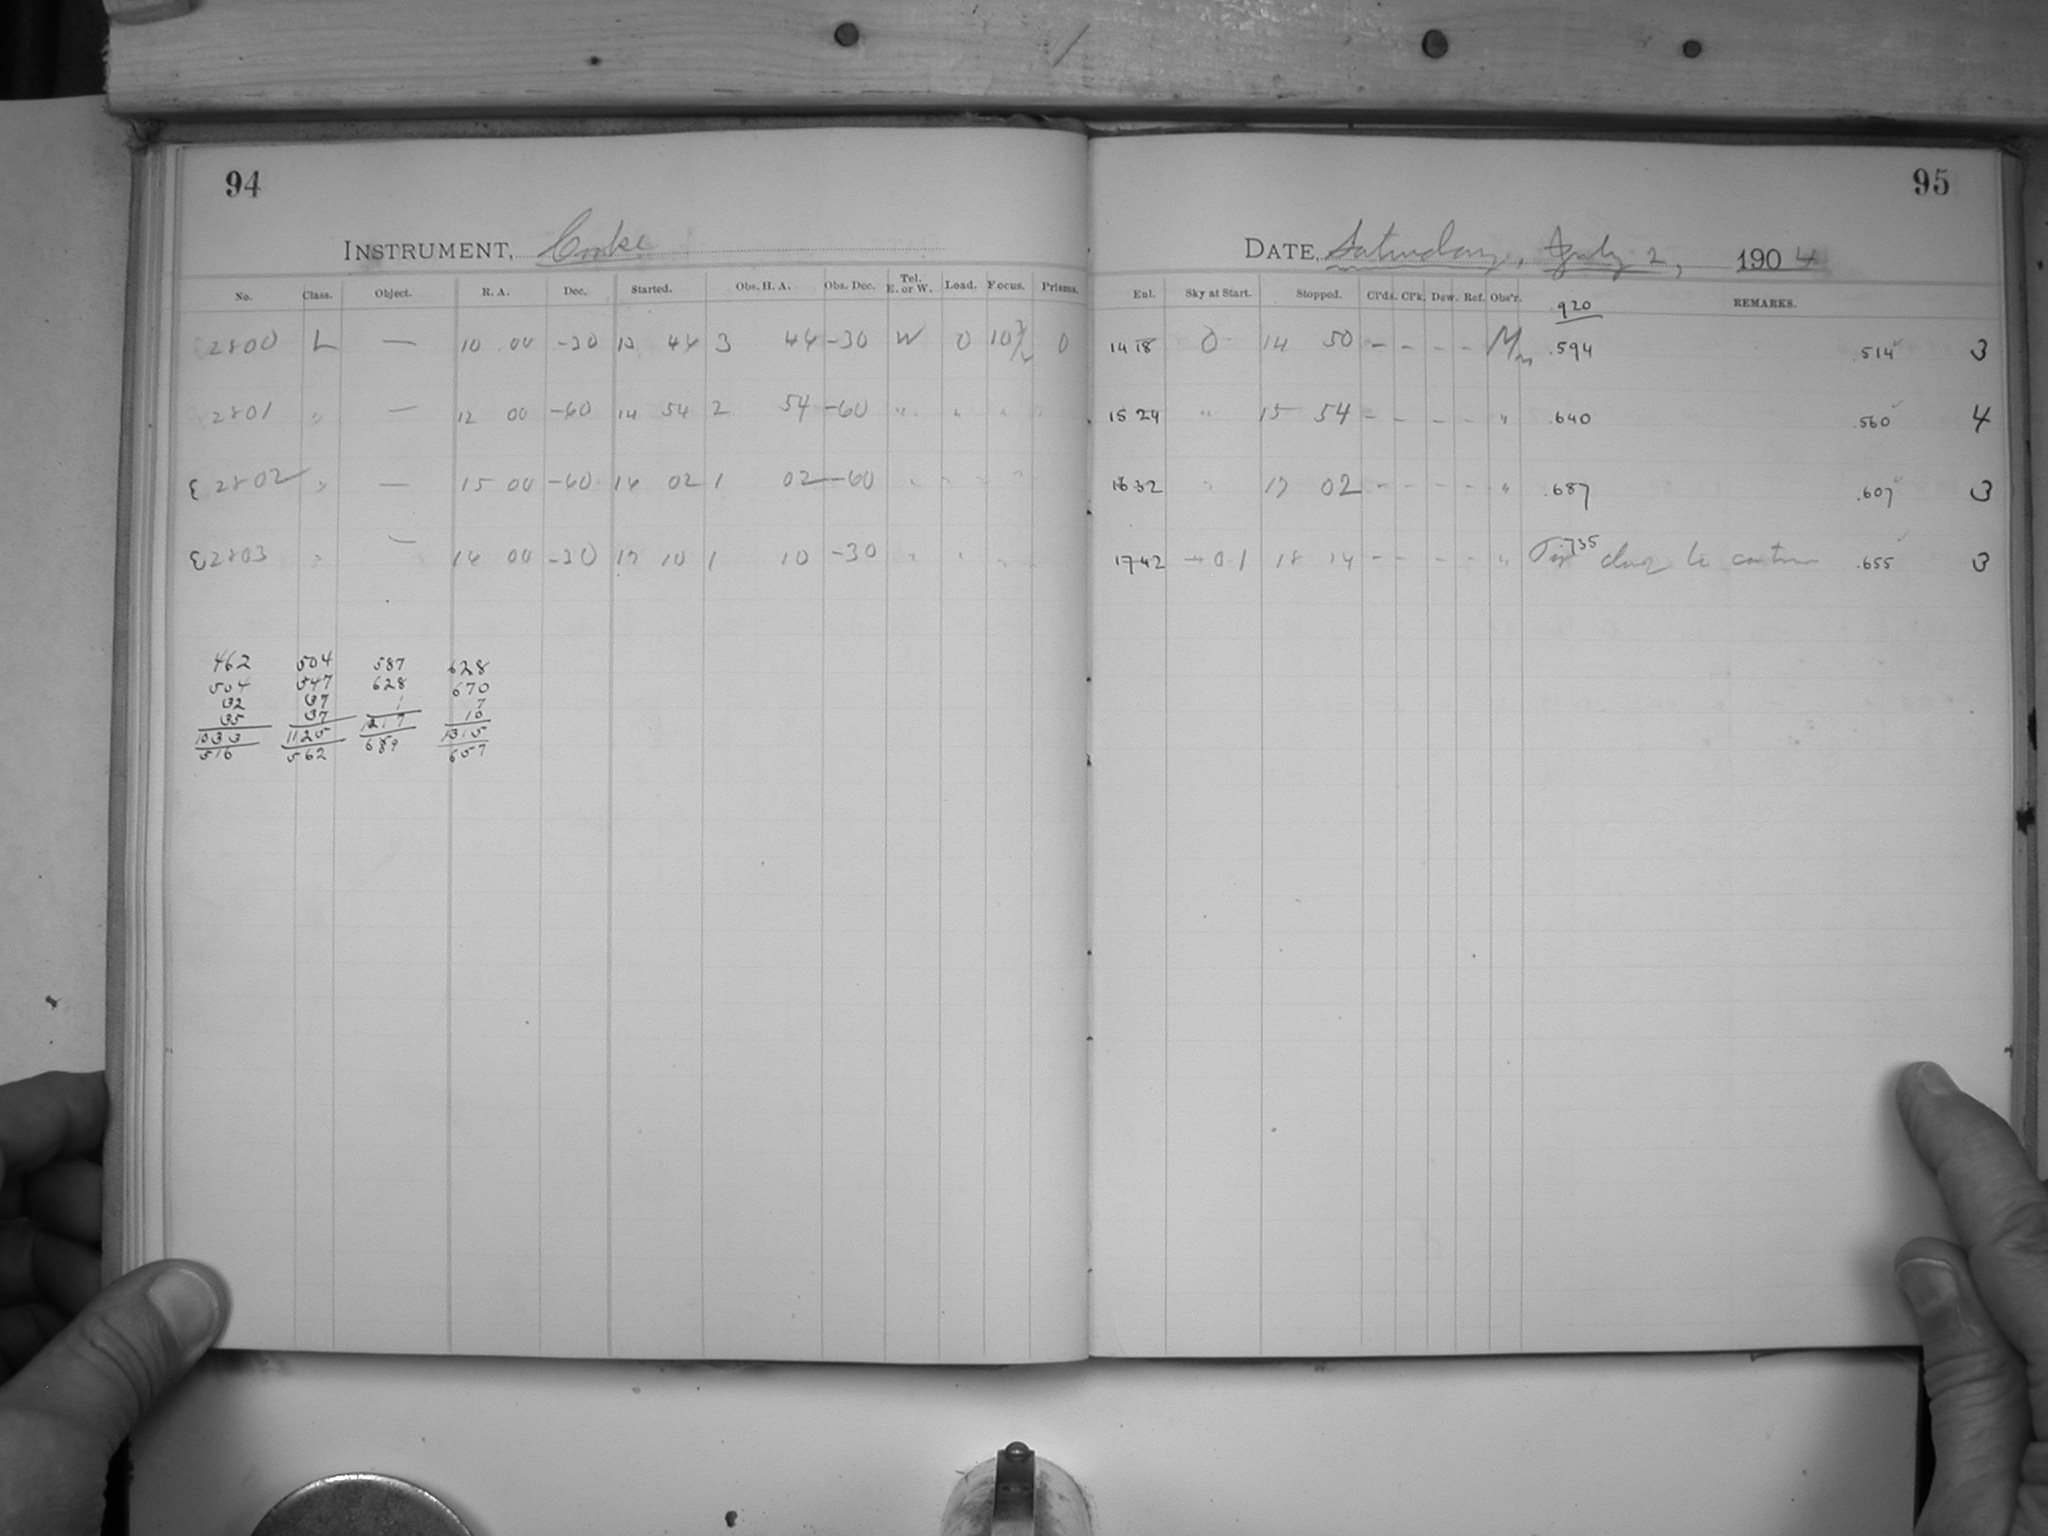 94
95
INSTRUMENT, Cooke
DATE, Saturday, July 2, 1904
No. Class. Object. R. A. Dec. Started. Obs. H. A. Obs. Dec. Tel. E. or W. Load. Focus. Prisms.
Enl. Sky at Start. Stopped. Cl'ds. Cl'k. Dew. Ref. Obs'r. 920 REMARKS.
2800 L — 10 00 -30 13 44 3 44 -30 W 0 10 0
1418 0 14 50 - - - - .594 .514 3
2801 " — 12 00 -60 14 54 2 54 -60 " " " "
1524 " 15 54 - - - - " .640 .560 4
E2802 " — 15 00 -60 16 02 1 02 -60 " " " "
1632 " 17 02 - - - - " .687 .607 3
E2803 " — 16 00 -30 17 10 1 10 -30 " " " "
1742 0.1 18 14 - - - - " .735 .655 3
462 504 587 628
504 547 628 670
32 37 1 7
35 37 1217 10
1033 1125 689 1315
516 562 657